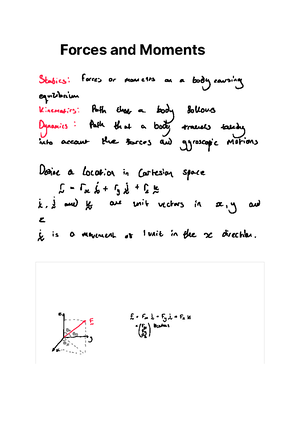 Forces and Moments
Statics: Forces or moments on a body causing
equilibrium
Kinematics: Path that a body follows
Dynamics: Path that a body travels taking
into account the forces and gyroscopic motions
Define a Location in Cartesian space
r = rx i + ry j + rz k
i, j and k are unit vectors in x, y and
z
i is a movement of 1 unit in the x direction.
F = Fx i + Fy j + Fz k
z
F
y